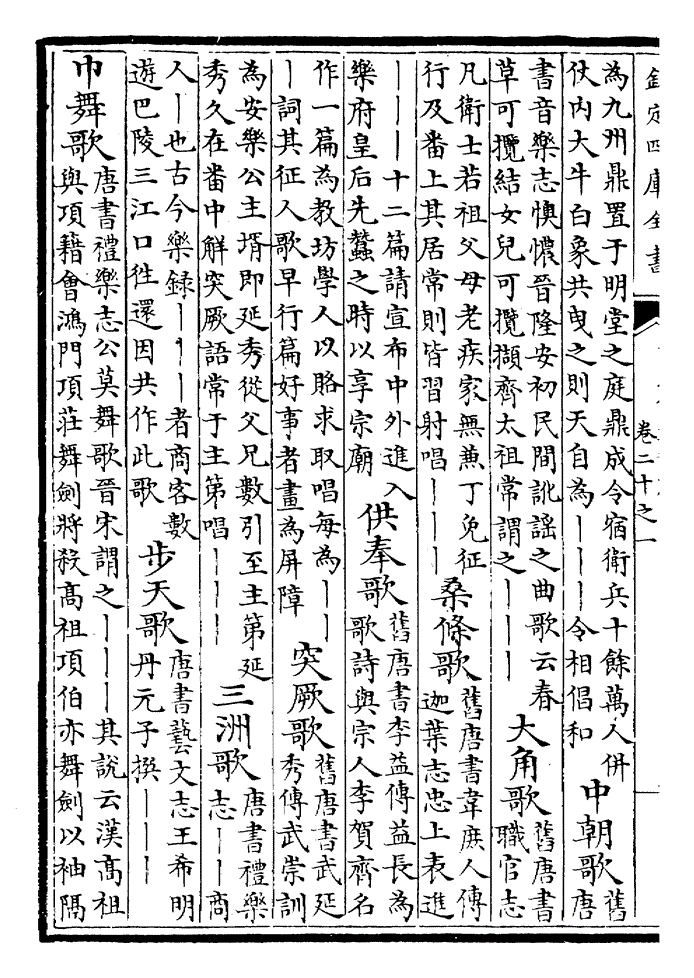 欽定四庫全書
卷二十之一
為九州鼎置于明堂之庭鼎成令宿衛兵十餘萬人併
仗内大牛白象共曵之則天自為｜｜｜令相倡和
中朝歌
舊
唐
書音樂志懊憹晉隆安初民間訛謡之曲歌云春
草可攬結女兒可攬擷齊太祖常謂之｜｜｜
大角歌
舊唐書
職官志
凡衛士若祖父母老疾家無兼丁免征
行及番上其居常則皆習射唱｜｜｜
桑條歌
舊唐書韋庶人傳
迦葉志忠上表進
｜｜｜十二篇請宣布中外進入
樂府皇后先蠶之時以享宗廟
供奉歌
舊唐書李益傳益長為
歌詩與宗人李賀齊名
作一篇為教坊學人以賂求取唱每為｜｜
｜詞其征人歌早行篇好事者畫為屏障
突厥歌
舊唐書武延
秀傳武崇訓
為安樂公主壻即延秀從父兄數引至主第延
秀久在番中解突厥語常于主第唱｜｜｜
三洲歌
唐書禮樂
志｜｜商
人｜也古今樂録｜｜｜者商客數
遊巴陵三江口徃還因共作此歌
步天歌
唐書藝文志王希明
丹元子撰｜｜｜
巾舞歌
唐書禮樂志公莫舞歌晉宋謂之｜｜｜其說云漢髙祖
與項籍會鴻門項莊舞劍將殺髙祖項伯亦舞劍以袖隔